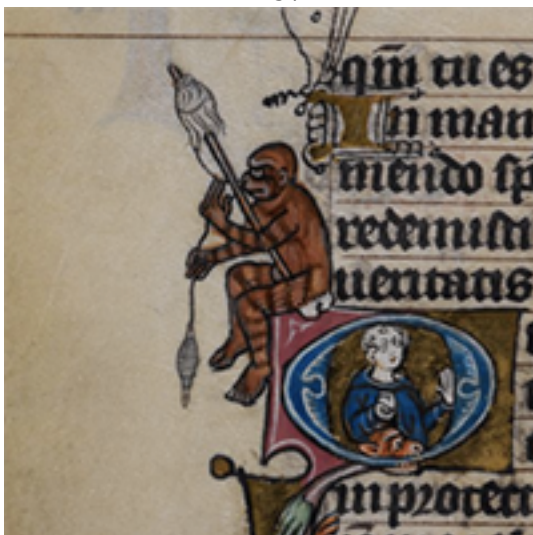 qm̄ tu es
In man
mendo sp̄
redemisti
ueritatis
in protect